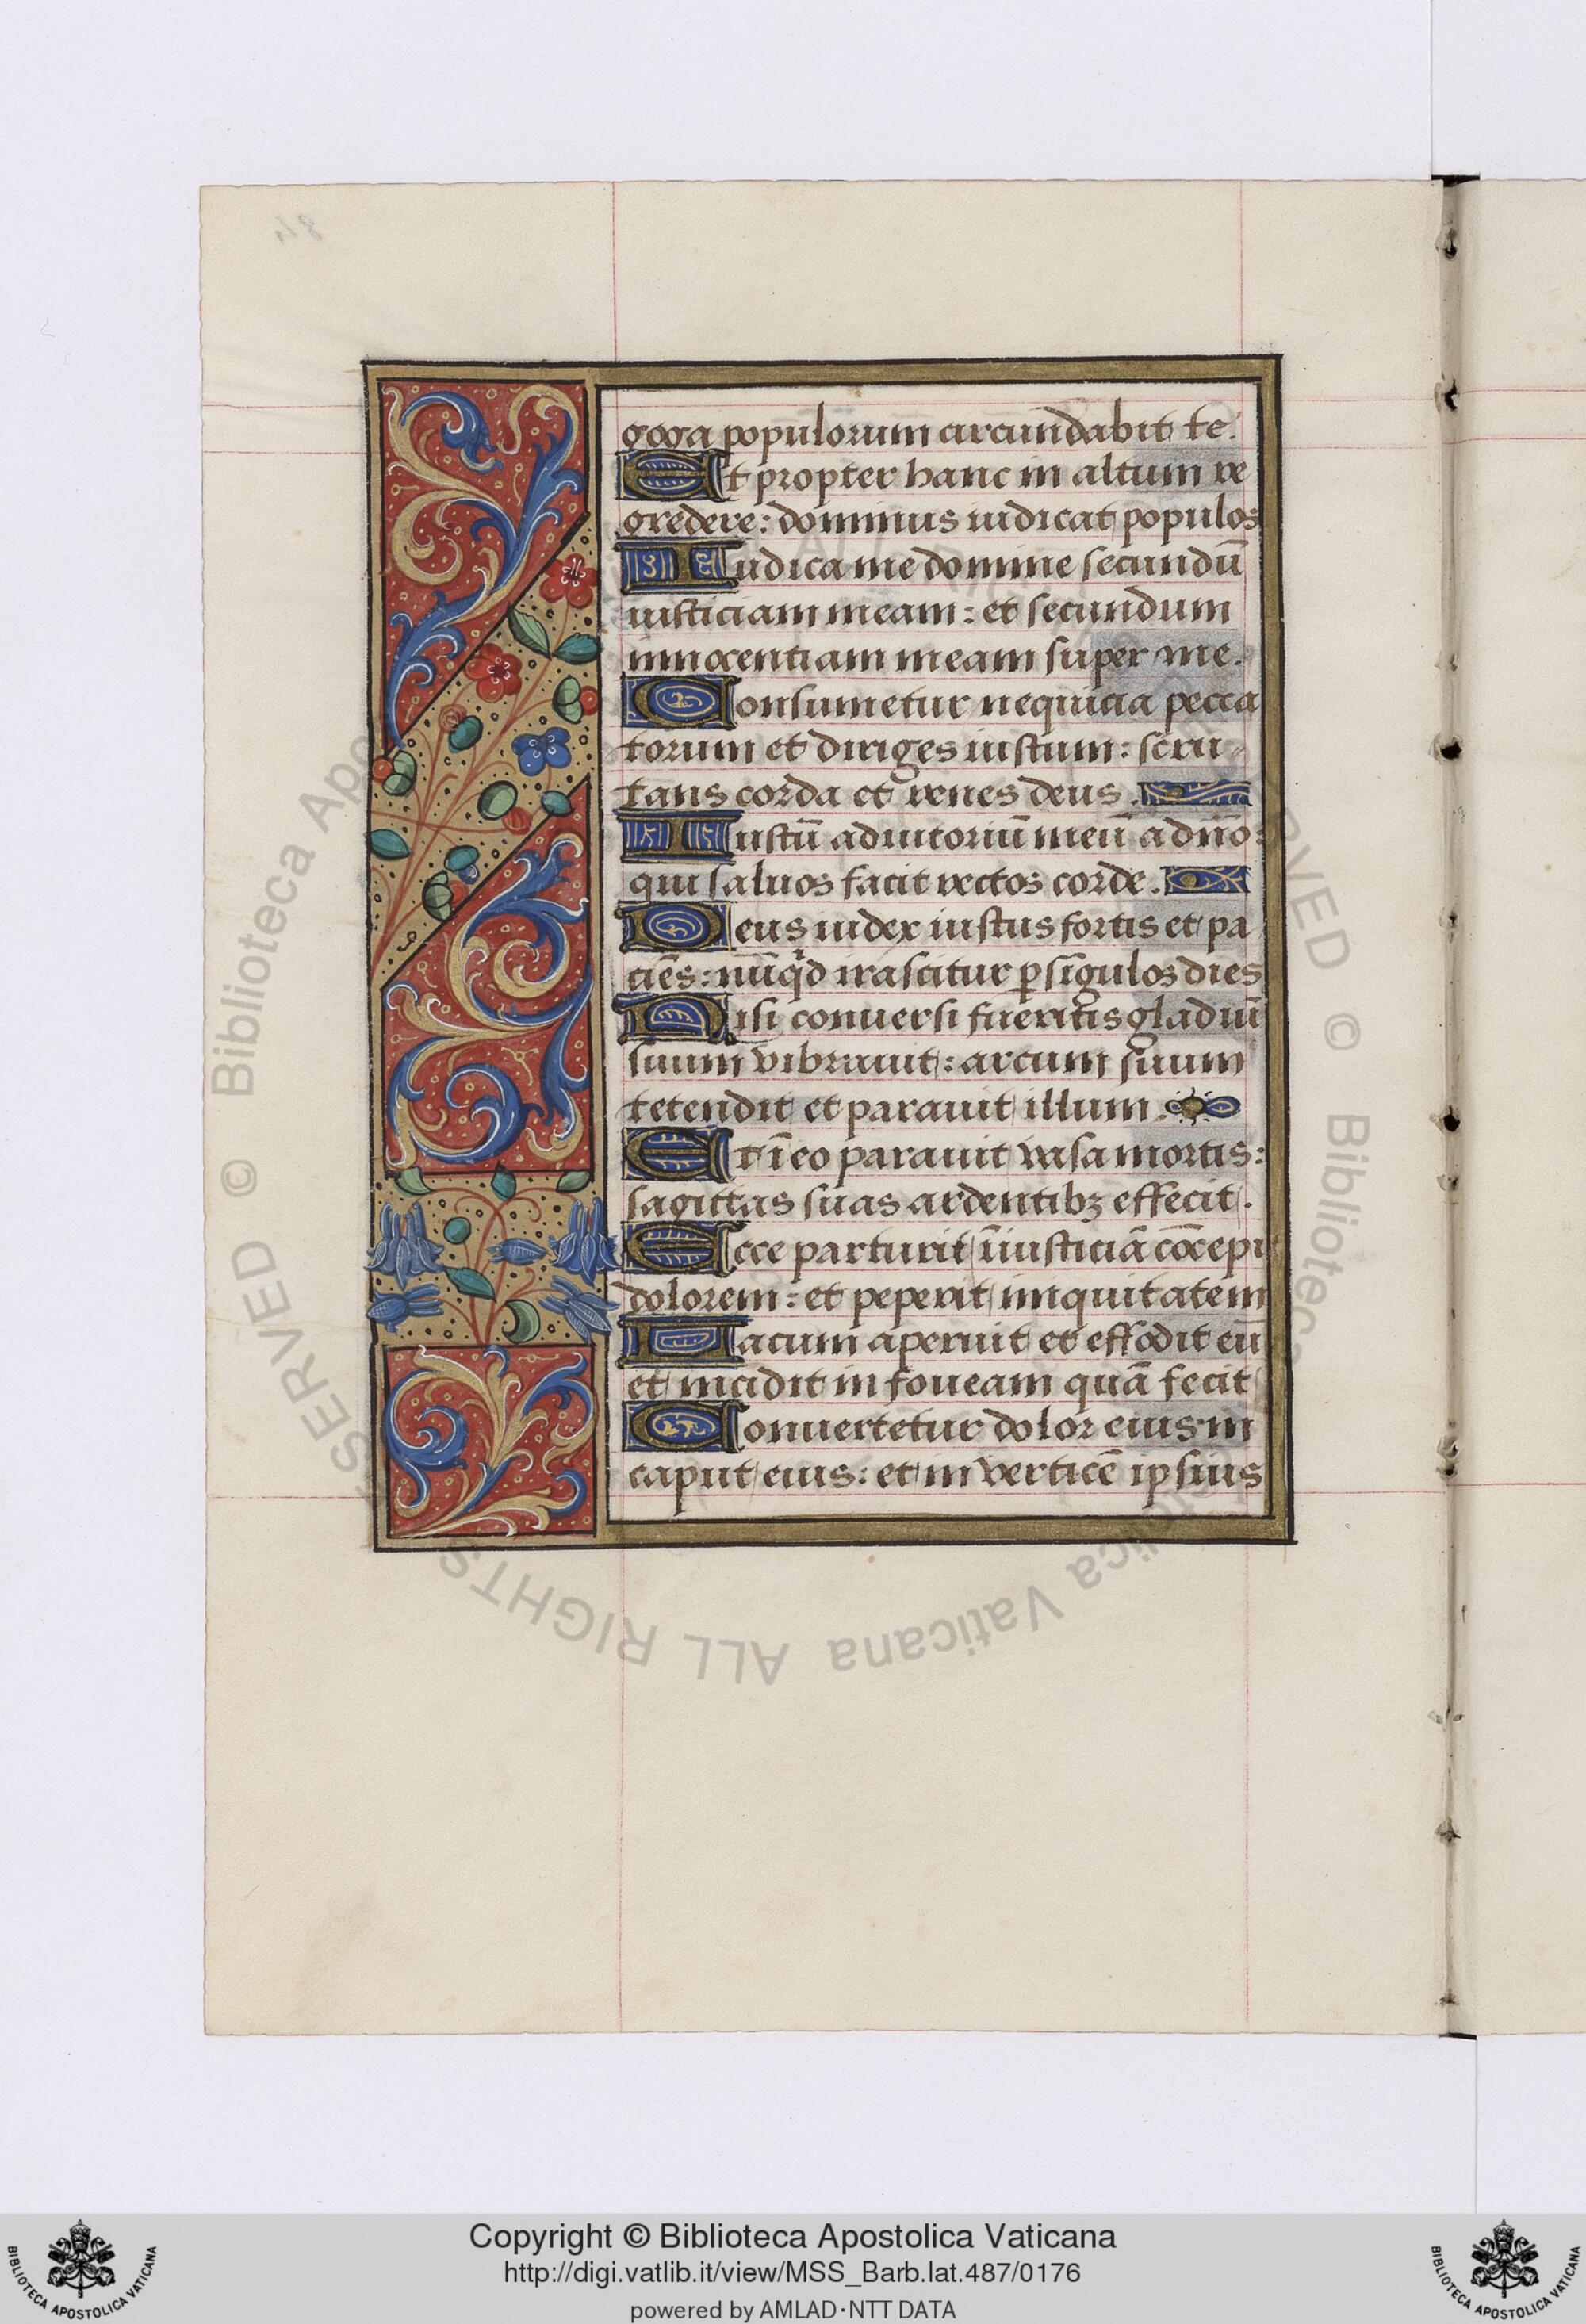 goga populorum circundabit te.
Et propter hanc in altum re
gredere: dominus iudicat populos
Iudica me domine secundū
iusticiam meam: et secundum
innocentiam meam super me.
Consumetur nequicia pecca
torum et diriges iustum: scru-
tans corda et renes deus.
Iustū adiutoriū meū a dño:
qui saluos facit rectos corde.
Deus iudex iustus fortis et pa
ciēs: nūqͥd irascitur ꝑ sīgulos dies
Nisi conuersi fueritis gladiū
suum vibrauit: arcum suum
tetendit et parauit illum.
Et ī eo parauit vasa mortis:
sagittas suas ardentibꝫ effecit.
Ecce parturit īiusticiā cōcepit
dolorem: et peperit iniquitatem
Lacum aperuit et effodit eū
et incidit in foueam quā fecit
Conuertetur dolor eius in
caput eius: et in verticē ipsius
© Biblioteca Apostolica Vaticana ALL RIGHTS RESERVED
Copyright © Biblioteca Apostolica Vaticana
http://digi.vatlib.it/view/MSS_Barb.lat.487/0176
powered by AMLAD·NTT DATA
BIBLIOTECA APOSTOLICA VATICANA
BIBLIOTECA APOSTOLICA VATICANA